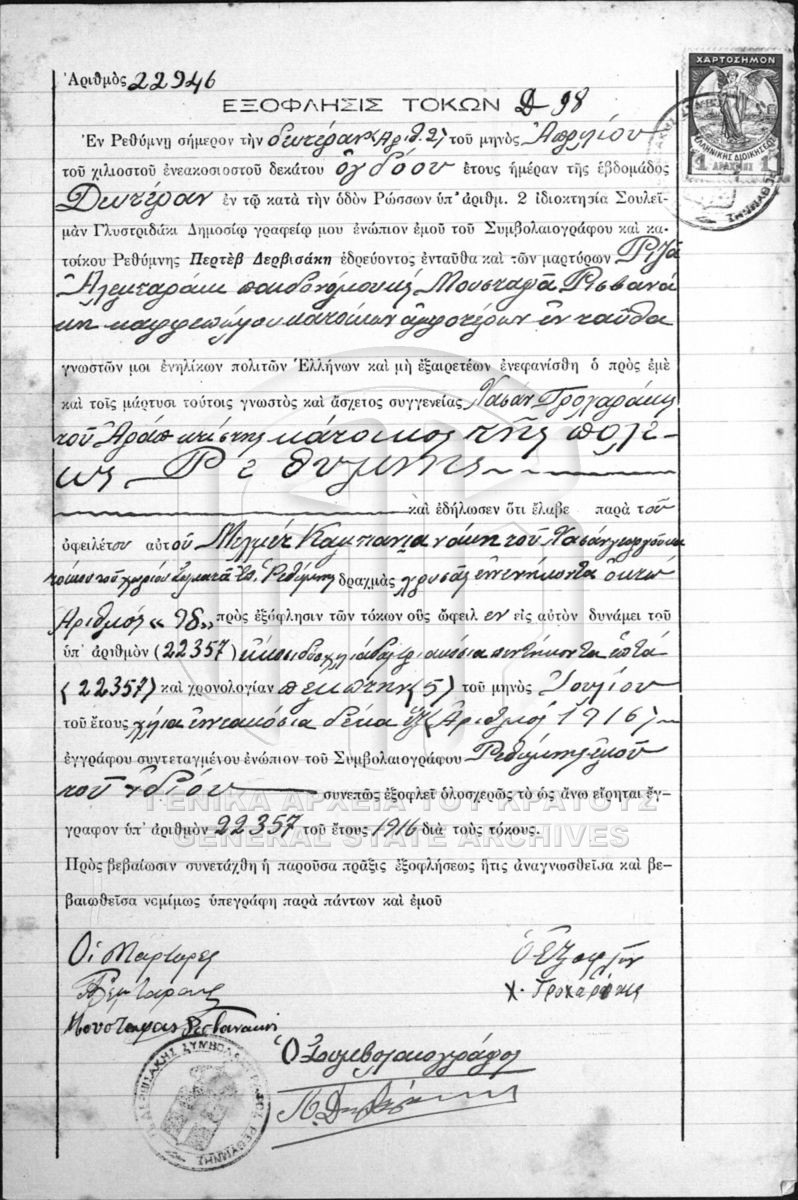 Ἀριθμὸς 22946
ΕΞΟΦΛΗΣΙΣ ΤΟΚΩΝ Δ 98
ΧΑΡΤΟΣΗΜΟΝ
ΕΛΛΗΝΙΚΗΣ ΔΙΟΙΚΗΣΕΩΣ
1 ΔΡΑΧΜΗΣ 1
Ἐν Ρεθύμνῃ σήμερον τὴν δευτέραν (Ἀριθ. 2) τοῦ μηνὸς Ἀπριλίου
τοῦ χιλιοστοῦ ἐνεακοσιοστοῦ δεκάτου ὀγδόου ἔτους ἡμέραν τῆς ἑβδομάδος
Δευτέραν ἐν τῷ κατὰ τὴν ὁδὸν Ρώσσων ὑπ' ἀριθμ. 2 ἰδιοκτησία Σουλεϊ-
μὰν Γλυστριδάκι Δημοσίῳ γραφείῳ μου ἐνώπιον ἐμοῦ τοῦ Συμβολαιογράφου καὶ κα-
τοίκου Ρεθύμνης Περτὲβ Δερβισάκη ἑδρεύοντος ἐνταῦθα καὶ τῶν μαρτύρων Ριζᾶ
παιδονόμου καὶ Μουσταφᾶ Ρισβανά
κη καφφεπώλου κατοίκων ἀμφοτέρων ἐνταῦθα
γνωστῶν μοι ἐνηλίκων πολιτῶν Ἑλλήνων καὶ μὴ ἐξαιρετέων ἐνεφανίσθη ὁ πρὸς ἐμὲ
καὶ τοῖς μάρτυσι τούτοις γνωστὸς καὶ ἄσχετος συγγενείας Χασὰν
τοῦ Ἀρὰπ κτίστης κάτοικος τῆς πόλε-
ως Ρεθύμνης
καὶ ἐδήλωσεν ὅτι ἔλαβε παρὰ τοῦ
ὀφειλέτου αὐτοῦ Μεχμὲτ τοῦ Χασὰν γεωργοῦ κα
τοίκου τοῦ χωρίου Ρεθύμνης δραχμὰς χρυσᾶς ἐνενήκοντα ὀκτὼ
Ἀριθμὸς «98» πρὸς ἐξόφλησιν τῶν τόκων οὓς ὤφειλεν εἰς αὐτὸν δυνάμει τοῦ
ὑπ' ἀριθμὸν (22357) εἴκοσι δύο χιλιάδας τριακόσια πεντήκοντα ἑπτά
(22357) καὶ χρονολογίαν πέμπτην (5) τοῦ μηνὸς Ἰουλίου
τοῦ ἔτους χίλια ἐννιακόσια δέκα ἓξ (Ἀριθμὸς 1916)
ἐγγράφου συντεταγμένου ἐνώπιον τοῦ Συμβολαιογράφου Ρεθύμνης ἐμοῦ
τοῦ ἰδίου συνεπῶς ἐξοφλεῖ ὁλοσχερῶς τὸ ὡς ἄνω εἴρηται ἔγ-
γραφον ὑπ' ἀριθμὸν 22357 τοῦ ἔτους 1916 διὰ τοὺς τόκους.
ΓΕΝΙΚΑ ΑΡΧΕΙΑ ΤΟΥ ΚΡΑΤΟΥΣ
GENERAL STATE ARCHIVES
Πρὸς βεβαίωσιν συνετάχθη ἡ παροῦσα πρᾶξις ἐξοφλήσεως ἥτις ἀναγνωσθεῖσα καὶ βε-
βαιωθεῖσα νομίμως ὑπεγράφη παρὰ πάντων καὶ ἐμοῦ
Οἱ Μάρτυρες
Ὁ Ἐξοφλῶν
Μουσταφᾶς Ρισβανάκη
Ὁ Συμβολαιογράφος